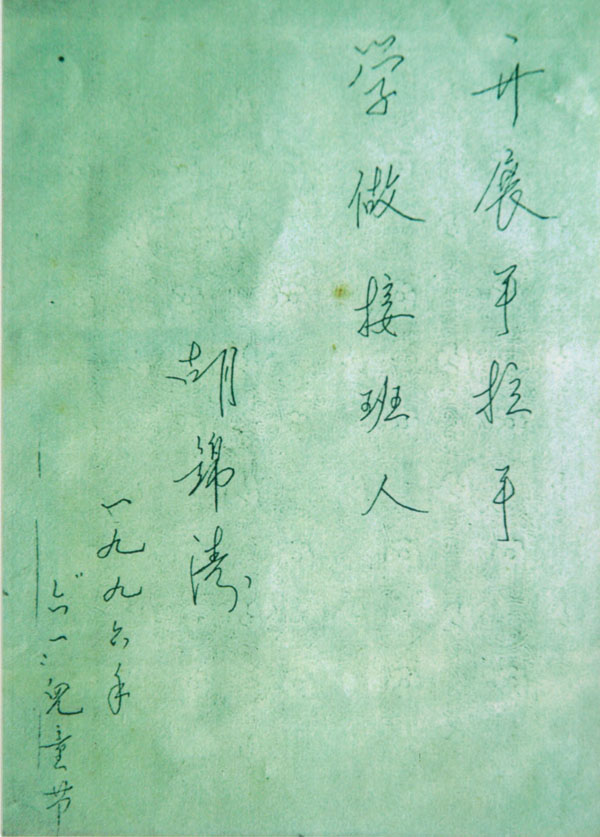 开展手拉手
学做接班人
胡锦涛
一九九六年
六一儿童节